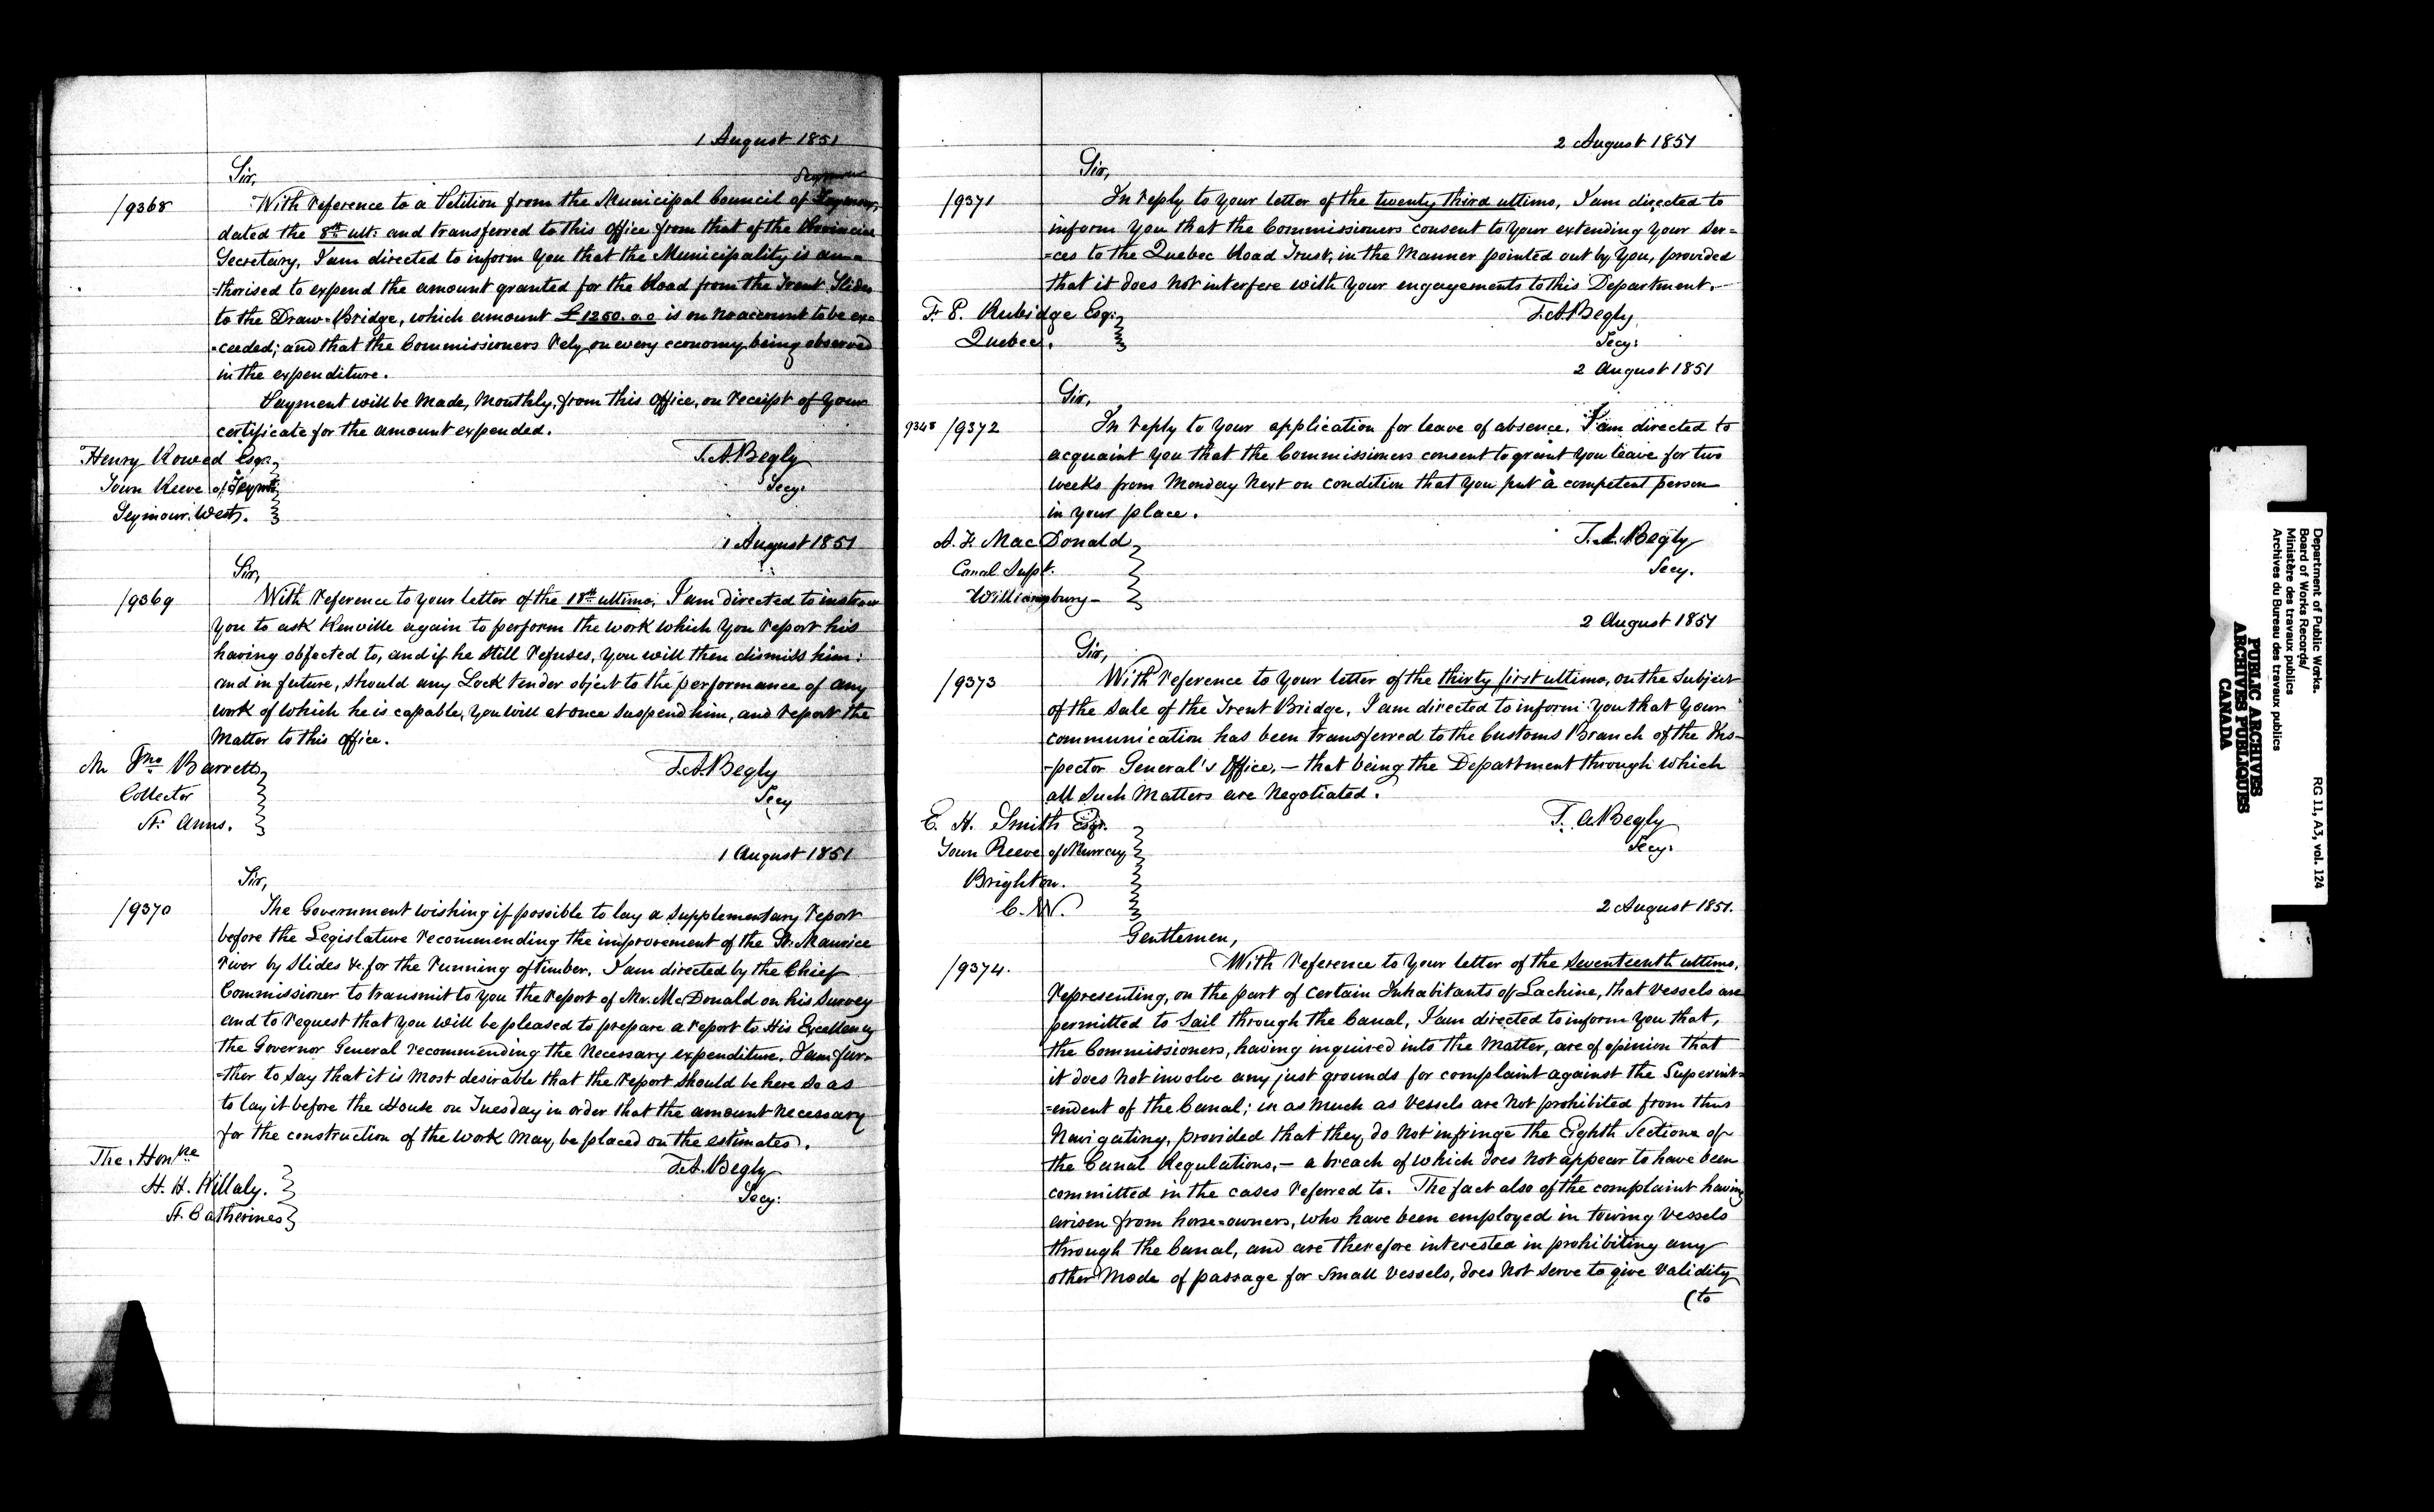 1 August 1851
Sir,
Seymour
/9368 With reference to a Petition from the Municipal Council of Seymour,
dated the 8th ult. and transferred to this Office from that of the Provincial
Secretary, I am directed to inform you that the Municipality is au=
=thorised to expend the amount granted for the Road from the Trent Slides
to the Draw-Bridge, which amount £1250.0.0 is on no account to be ex=
=ceeded; and that the Commissioners rely on every economy being observed
in the expenditure.
Payment will be made, monthly, from this Office, on receipt of your
certificate for the amount expended.
Henry Rowed Esqr.
T.A. Begly
Town Reeve of Seymour
Secy.
Seymour West.
1 August 1851
Sir,
/9369 With reference to your letter of the 18th ultimo, I am directed to instruct
you to ask Renville again to perform the work which you report his
having objected to, and if he still refuses, you will then dismiss him:
and in future, should any Lock tender object to the performance of any
work of which he is capable, you will at once suspend him, and report the
matter to this Office.
Mr Jno Barrett
T.A. Begly
Collector
Secy
St. Anns.
1 August 1851
Sir,
/9370 The Government wishing if possible to lay a supplementary report
before the Legislature recommending the improvement of the St. Maurice
river by slides &c. for the running of timber, I am directed by the Chief
Commissioner to transmit to you the report of Mr. McDonald on his survey
and to request that you will be pleased to prepare a report to His Excellency
the Governor General recommending the necessary expenditure. I am fur=
=ther to say that it is most desirable that the report should be here so as
to lay it before the House on Tuesday in order that the amount necessary
for the construction of the work may be placed on the estimates.
The Honble
T.A. Begly
H. H. Killaly.
Secy:
St. Catherines
2 August 1851
Sir,
/9371 In reply to your letter of the twenty third ultimo, I am directed to
inform you that the Commissioners consent to your extending your ser=
=ces to the Quebec Road Trust, in the manner pointed out by you, provided
that it does not interfere with your engagements to this Department.
F. P. Rubidge Esqr.
T.A. Begly
Quebec.
Secy:
2 August 1851
Sir,
9348 /9372 In reply to your application for leave of absence, I am directed to
acquaint you that the Commissioners consent to grant you leave for two
weeks from Monday next on condition that you put a competent person
in your place.
A. F. MacDonald
T.A. Begly
Canal Supt.
Secy.
Williamsburg
2 August 1851
Sir,
/9373 With reference to your letter of the thirty first ultimo, on the subject
of the sale of the Trent Bridge, I am directed to inform you that your
communication has been transferred to the Customs Branch of the Ins-
-pector General's Office, — that being the Department through which
all such matters are negotiated.
E. H. Smith Esqr.
T. A. Begly
Town Reeve of Murray
Secy:
Brighton.
C. W.
2 August 1851.
Gentlemen,
/9374. With reference to your letter of the seventeenth ultimo,
representing, on the part of certain Inhabitants of Lachine, that vessels are
permitted to sail through the Canal, I am directed to inform you that,
the Commissioners, having inquired into the matter, are of opinion that
it does not involve any just grounds for complaint against the Superint=
=endent of the Canal; in as much as vessels are not prohibited from thus
navigating, provided that they do not infringe the Eighth Section of
the Canal Regulations, — a breach of which does not appear to have been
committed in the cases referred to. The fact also of the complaint having
arisen from horse-owners, who have been employed in towing vessels
through the Canal, and are therefore interested in prohibiting any
other mode of passage for small vessels, does not serve to give validity
(to
Department of Public Works.
Board of Works Records/
Ministère des travaux publics
Archives du Bureau des travaux publics
RG 11, A3, vol. 124
PUBLIC ARCHIVES
ARCHIVES PUBLIQUES
CANADA